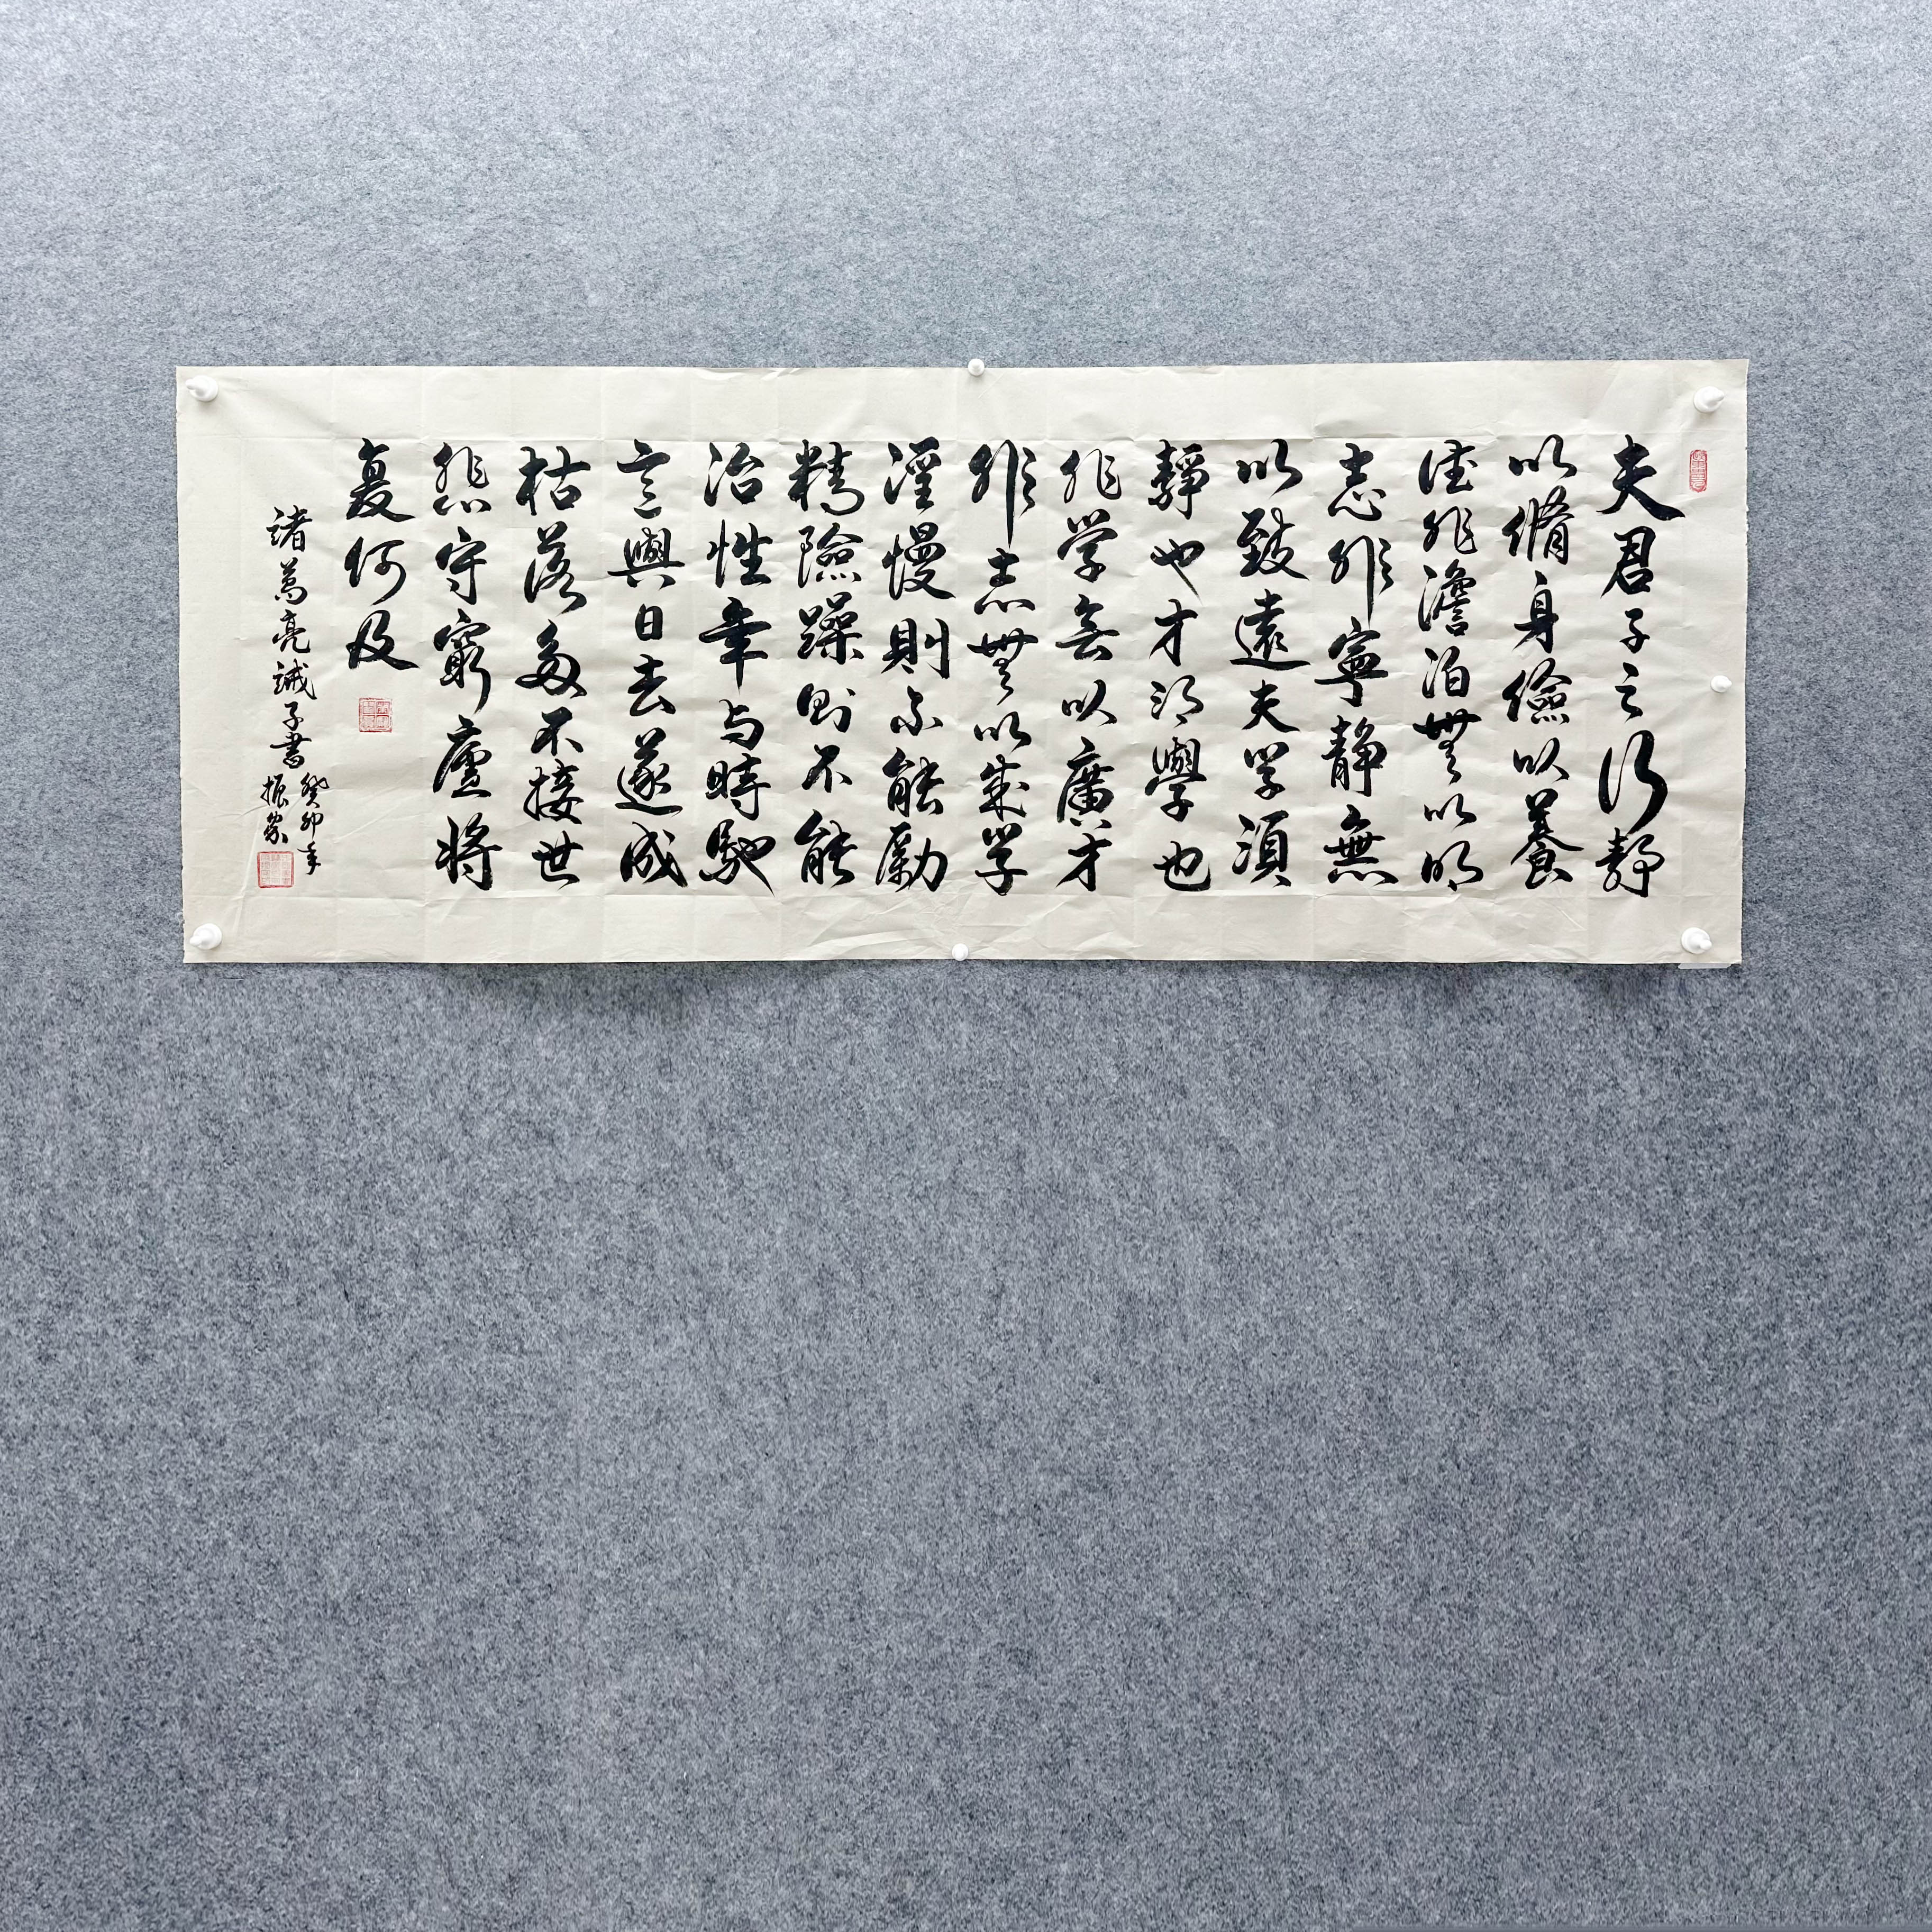 夫君子之行静
以脩身儉以養
德非澹泊無以明
志非寧静無
以致遠夫学須
靜也才須學也
非学無以廣才
非志無以成学
淫慢則不能勵
精險躁則不能
治性年与時馳
意與日去遂成
枯落多不接世
悲守窮廬將
复何及
諸葛亮誡子書
癸卯年